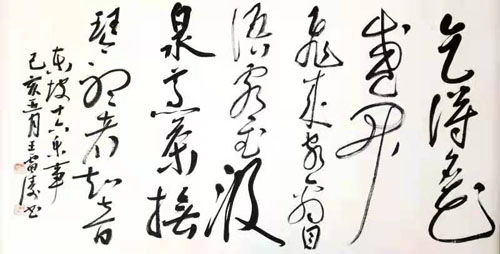 乞得名花
盛开
飛来家禽自
语客至汲
泉烹茶撫
琴听者知音
东坡十六乐事
己亥五月王雷涛书